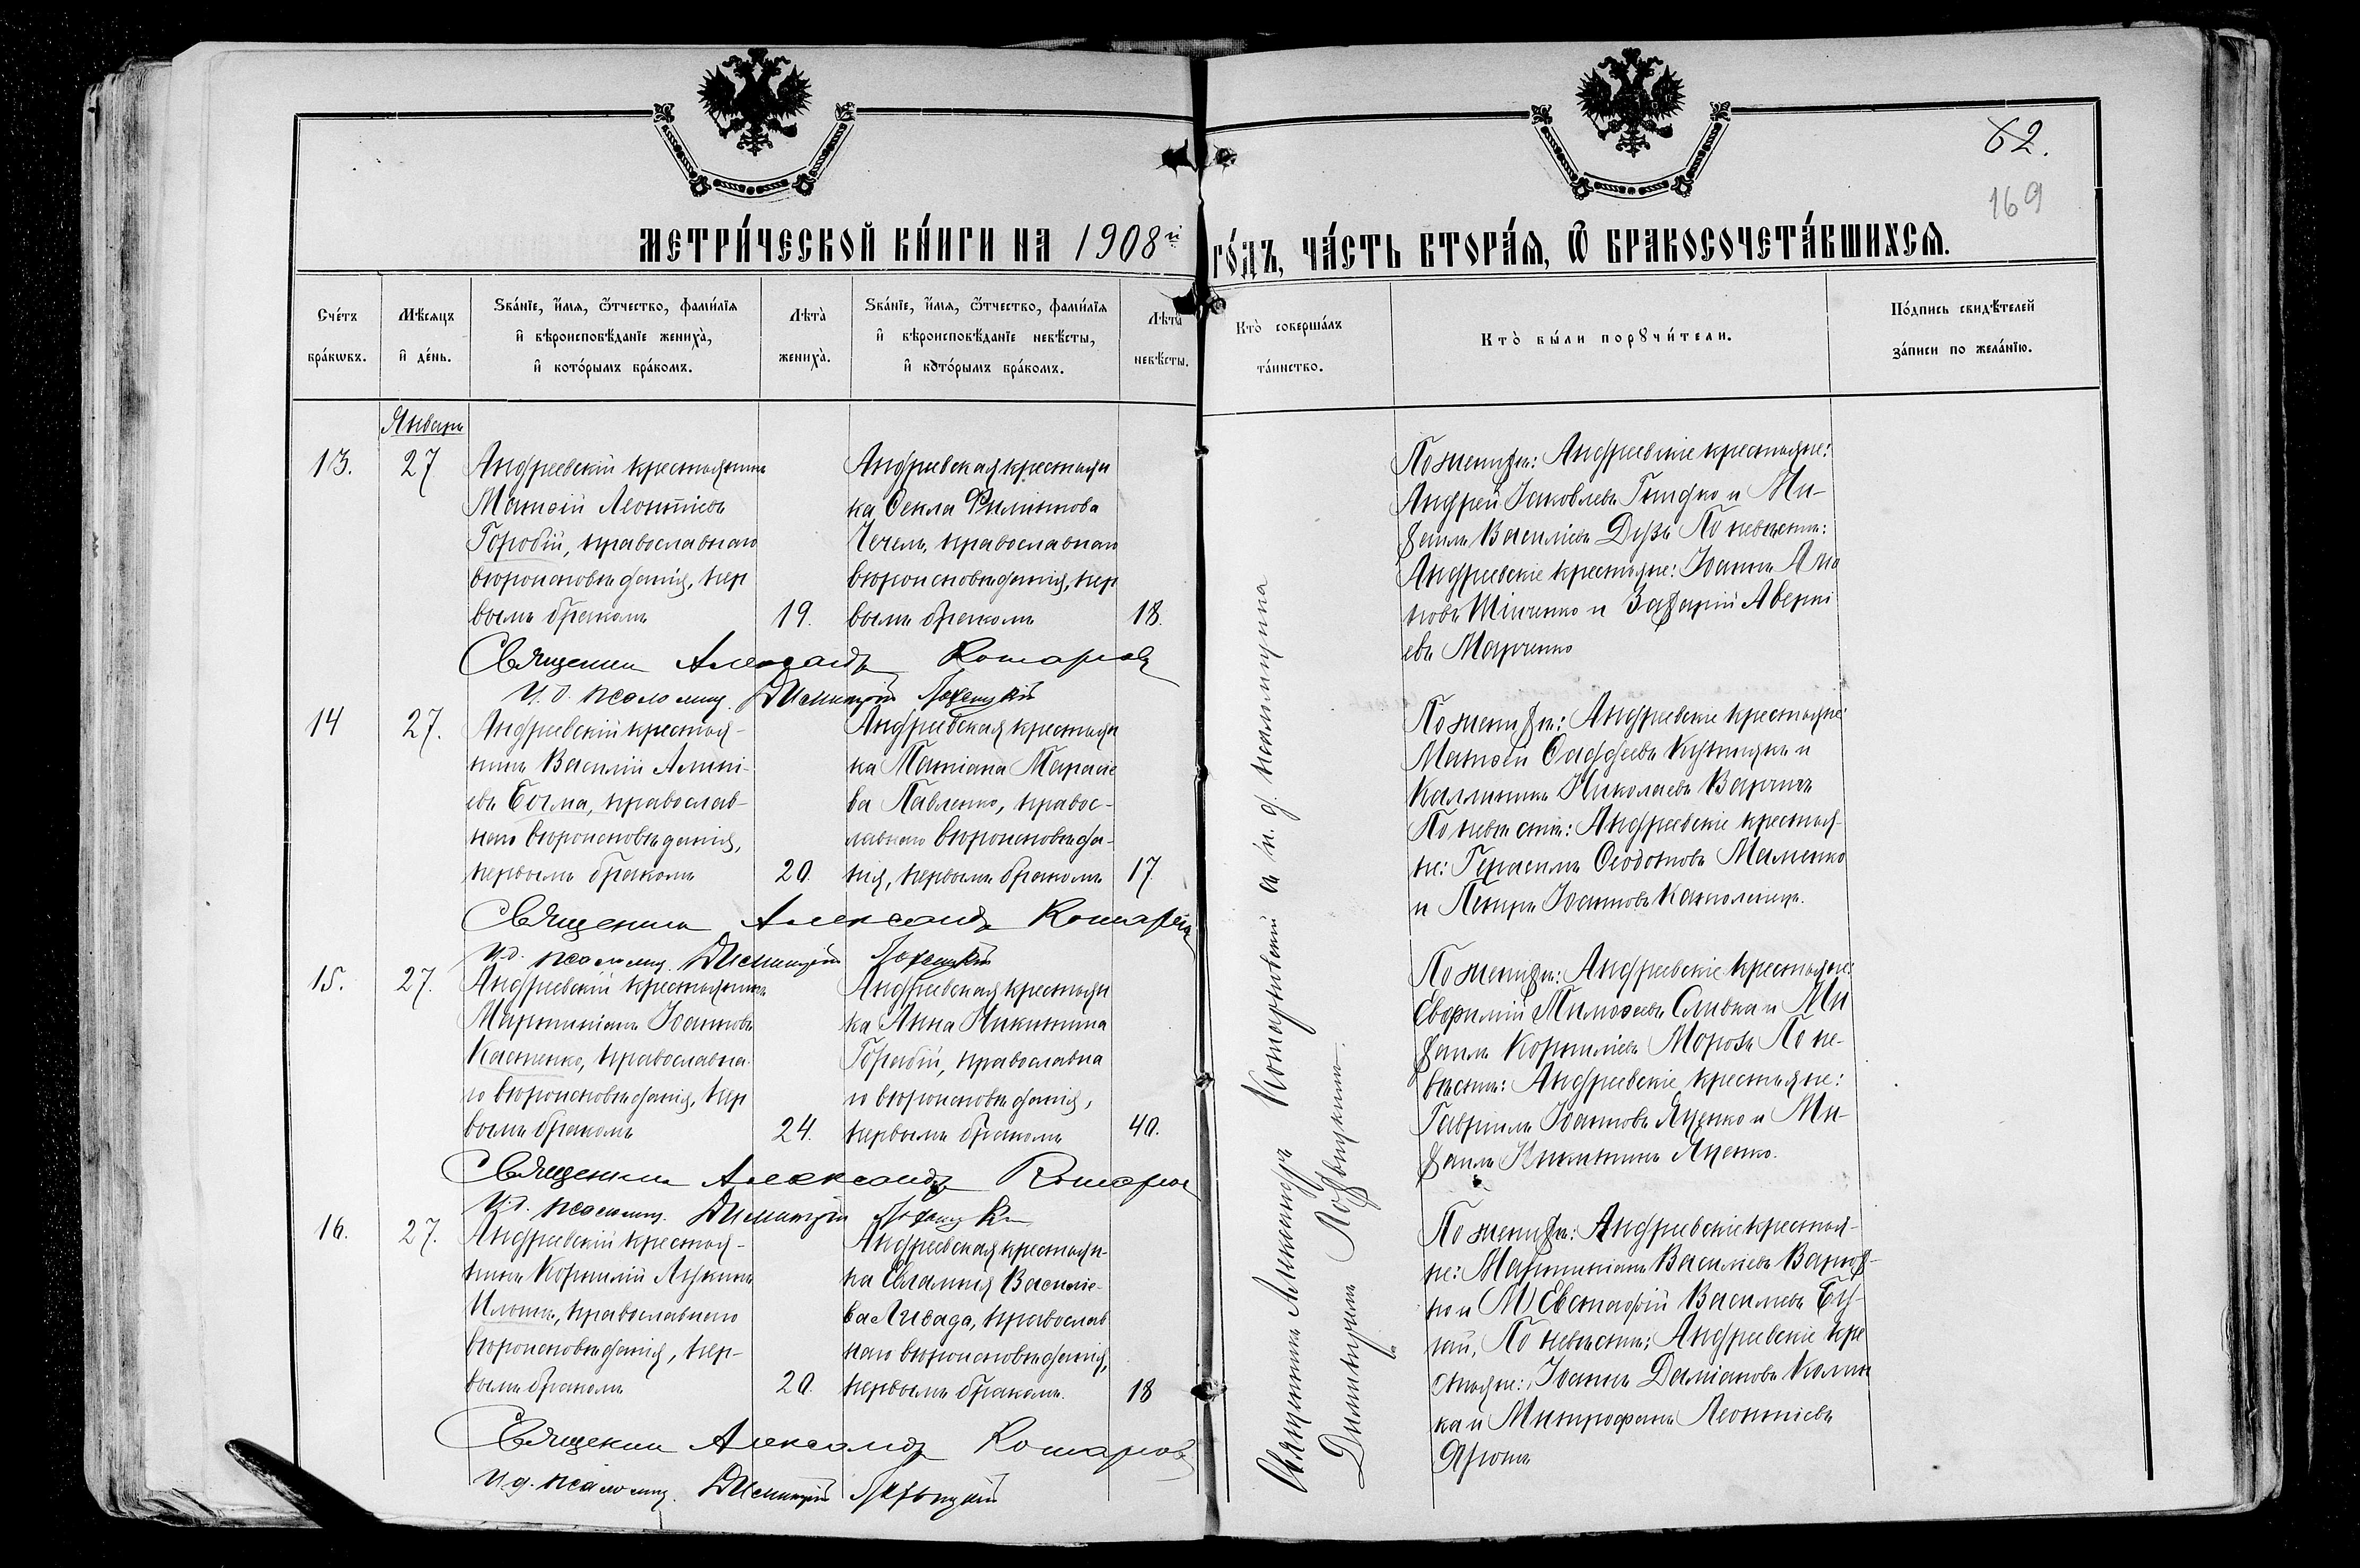 62.
169
МЕТРИ́ЧЕСКОЙ КНИ́ГИ НА 1908й
ГО́ДЪ, ЧА́СТЬ ВТОРА́Я, Ѿ БРАКОСОЧЕТА́ВШИХСЯ.
Сче́тъ
бра́кωвъ.
Мѣ́сяцъ
и҆ де́нь.
Ѕва́нїе, и҆́мя, ѻ҆́тчество, фами́лїя
и҆ вѣроисповѣ́данїе жениха̀,
и҆ кото́рымъ бра́комъ.
Лѣта̀
жениха̀.
Ѕва́нїе, и҆́мя, ѻ҆́тчество, фами́лїя
и҆ вѣроисповѣ́данїе невѣ́сты,
и҆ кото́рымъ бра́комъ.
Лѣта̀
невѣ́сты.
Кто̀ соверша́лъ
та́инство.
Кто̀ бы́ли порꙋчи́тели.
По́дпись свидѣ́телей
за́писи по жела́нїю.
Январь
13.
27
Андреевскій крестьянинъ
Матѳій Леонтіевъ
Горобій, православнаго
вѣроисповѣданія, пер
вымъ бракомъ
19.
Андреевская крестьян
ка Ѳекла Филиппова
Чечель, православнаго
вѣроисповѣданія, пер
вымъ бракомъ
18.
По женихѣ: Андреевскіе крестьяне:
Андрей Іаковлевъ Гнидко и Ми-
хаилъ Василіевъ По невѣстѣ:
Андреевскіе крестьяне: Іоаннъ
Шинченко и Захарій Аверкі
евъ Марченко
Священникъ Александръ Комаров
И. д. псаломщ. Димитрій
14
27.
Андреевскій крестья-
нинъ Василій
евъ православ-
наго вѣроисповѣданія,
первымъ бракомъ
20.
Андреевская крестьян
ка Татіана Тарасіе
ва Павленко, правос-
лавнаго вѣроисповѣда-
нія, первымъ бракомъ
17.
По женихѣ: Андреевскіе крестьяне:
Матѳій Ѳаддеевъ и
Каллиникъ Николаевъ
По невѣстѣ: Андреевскіе крестья-
не: Герасимъ Ѳеодотовъ Маменко
и Петръ Іоанновъ
Священникъ Александръ Комаров
И. д. псаломщ. Димитрій
15.
27.
Андреевскій крестьянинъ
Мартиніанъ Іоанновъ
Костенко, православна
го вѣроисповѣданія, пер
вымъ бракомъ
24.
Андреевская крестьян
ка Анна Никитина
Горобій, православна
го вѣроисповѣданія,
первымъ бракомъ
40.
По женихѣ: Андреевскіе крестьяне:
Евѳимій Тимоѳеевъ Сливка и Ми
хаилъ Корниліевъ Морозъ По не-
вѣстѣ: Андреевскіе крестьяне:
Гавріилъ Іоанновъ Яценко и Ми-
хаилъ Яценко.
Священникъ Александръ Комаров
И. д. псаломщ. Димитрій
16.
27.
Андреевскій крестья-
нинъ Корнилій Лукинъ
православнаго
вѣроисповѣданія, пер-
вымъ бракомъ
20.
Андреевская крестьян-
ка Евгенія Василіе-
ва Ливада, православ
наго вѣроисповѣданія,
первымъ бракомъ.
18
По женихѣ: Андреевскіе крестья-
не: Мартиніанъ Василіевъ
и Евстафій Василіевъ
По невѣстѣ: Андреевскіе кре
стьяне: Іоаннъ Даміановъ
ка и Митрофанъ Леонтіевъ
Ярошъ
Священникъ Александръ Комаров
И. д. псаломщ. Димитрій
Священникъ Александръ Комаровскій съ и. д. псаломщика
Димитріемъ